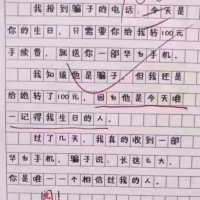 我接到骗子的电话，今天是
你的生日，只需要你给我转100元
手续费，就送你一部华为手机。
我知道他是骗子，但我还是
给她转了100元，因为他是今天唯
一记得我生日的人。
过了几天，我真的收到一部
华为手机，骗子说，长这么大，
你是唯一一个相信过我的人。